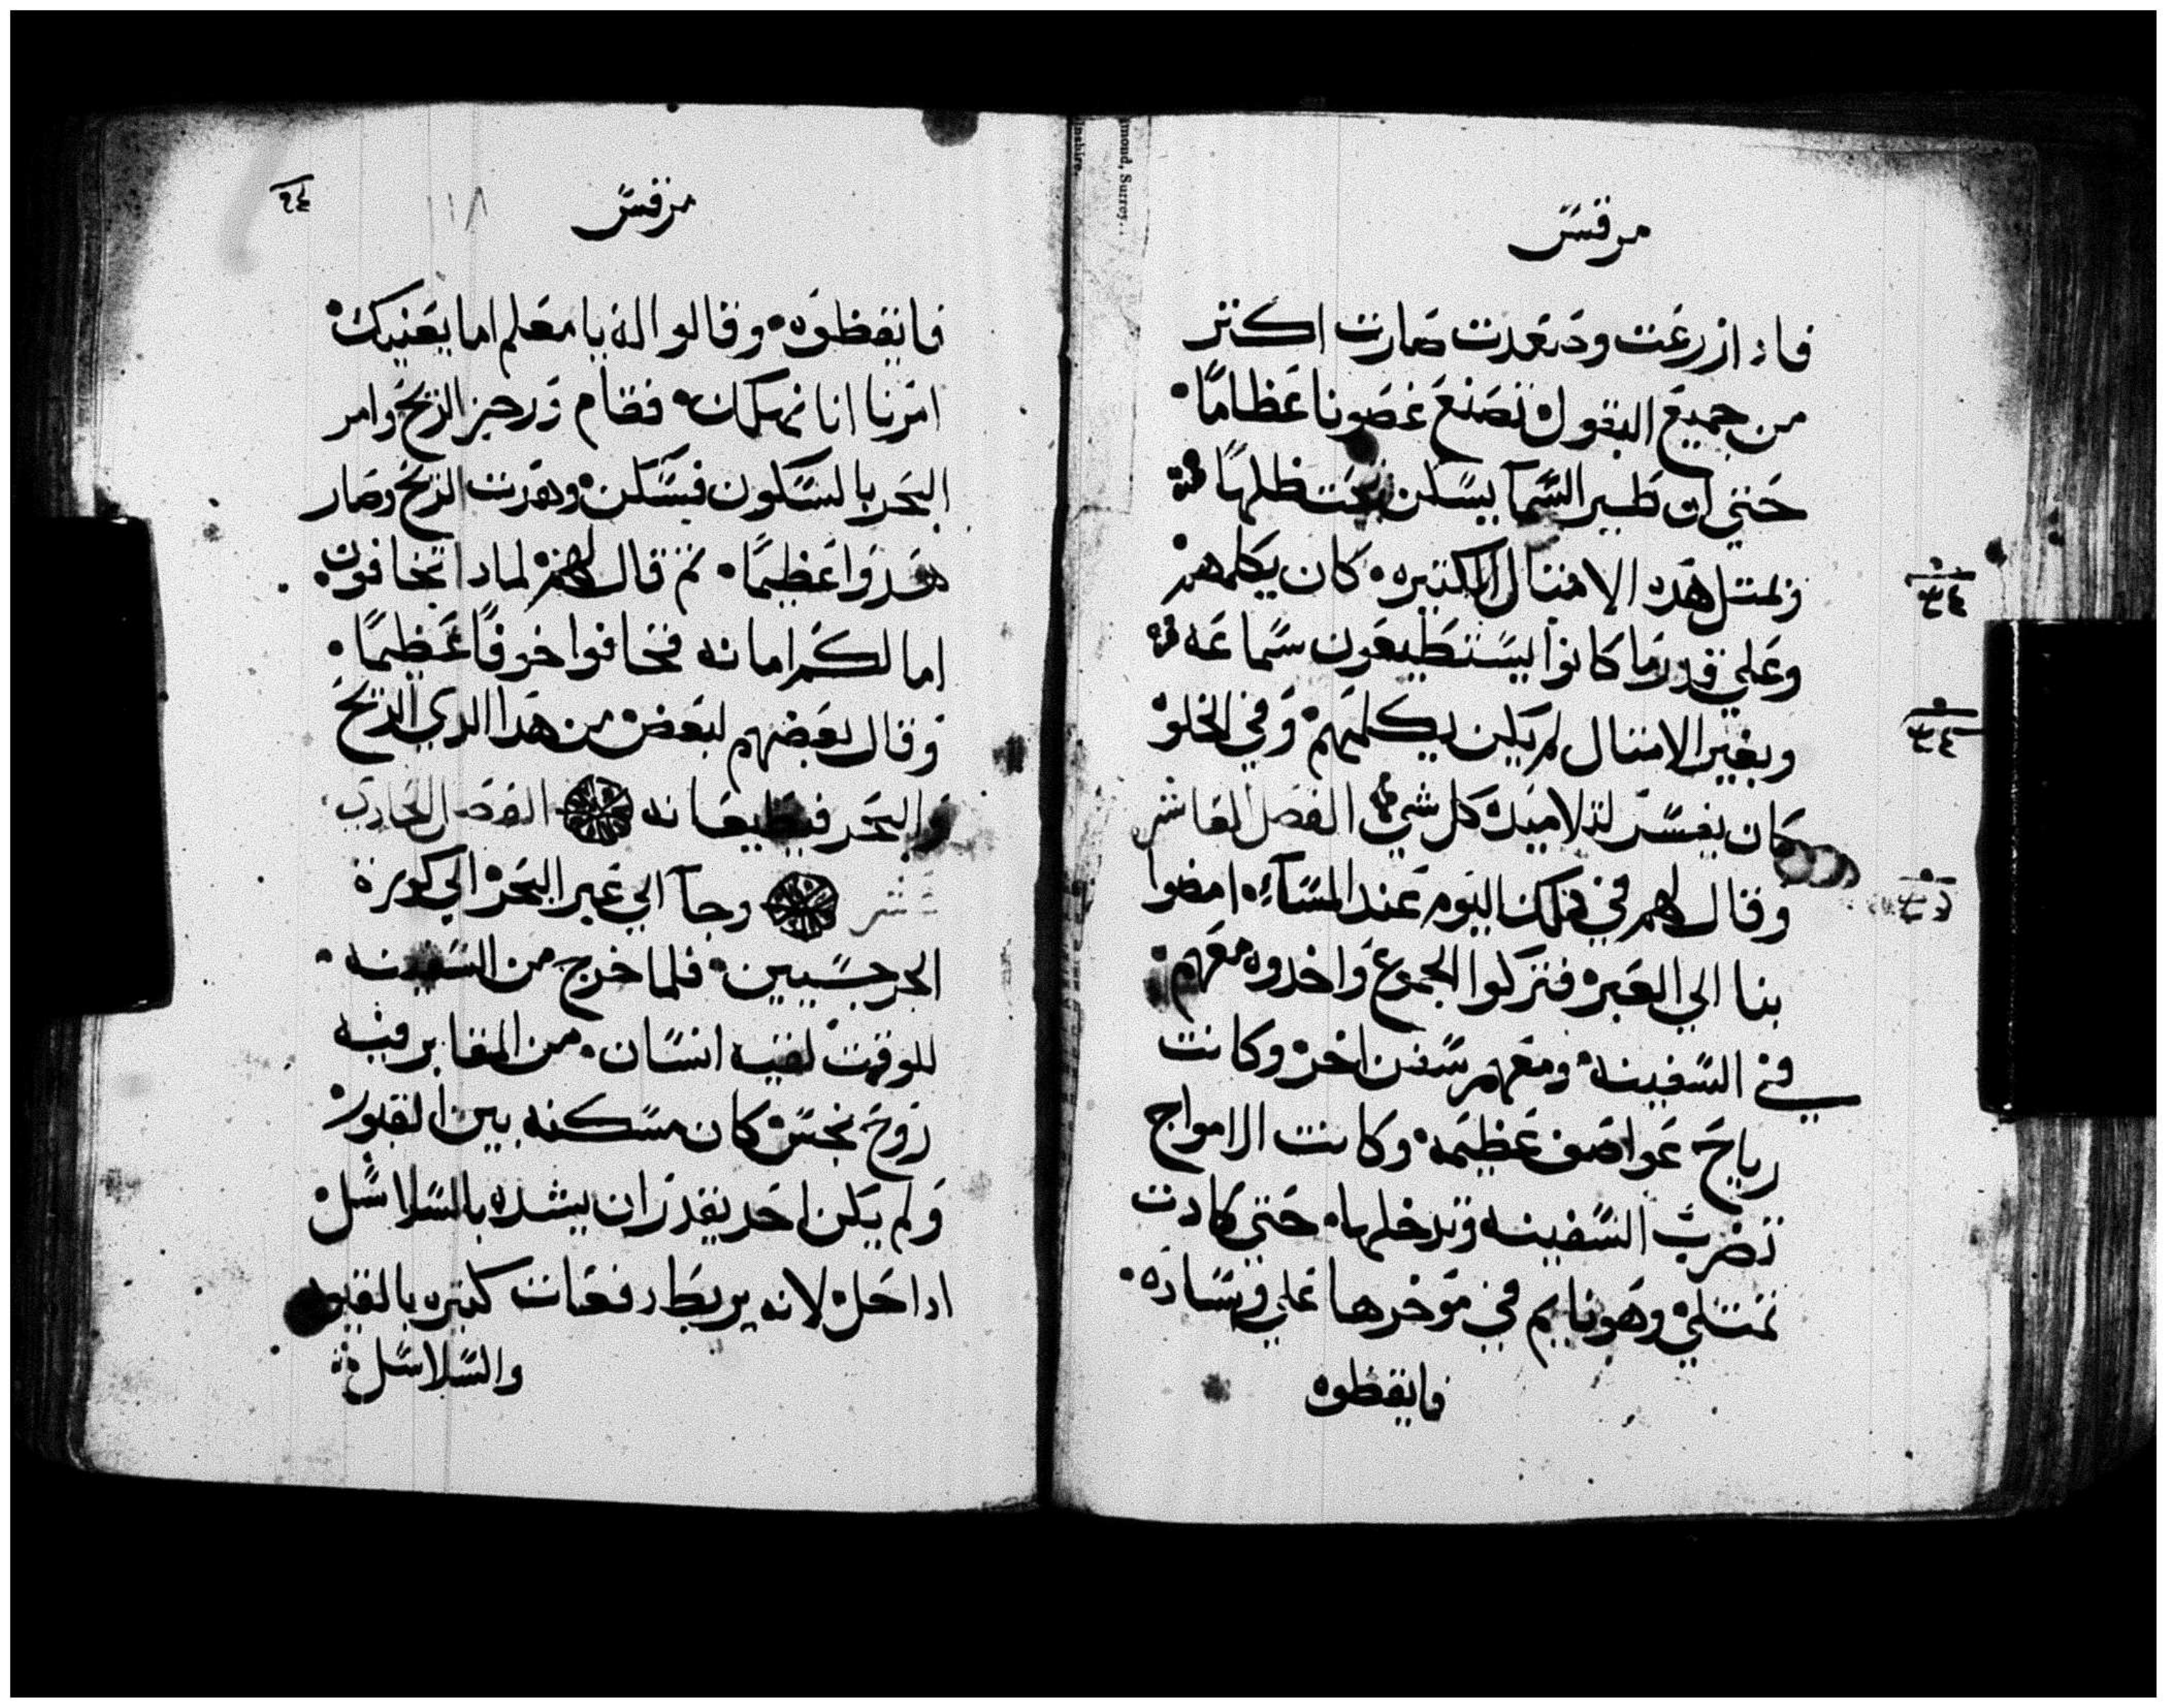 مرقس
فادا زرعت وصعدت صارت اكتر
من جميع البقول تصنع غصونا عظاماً
حتي ان طير السمآ يسكن تحت ظلها
وبمتل هده الامتال الكتيره كان يكلمهم
وعلي قدر ما كانوا يستطيعون سماعه
وبغير الامتال لم يكن يكلمهم وفي الخلو
كان يفسر لتلاميده كل شي الفصل العاشر
وقال لهم في دلك اليوم عند المسآء امضوا
بنا الي العبر فتركوا الجموع واخدوه معهم
في السفينه ومعهم سفن اخر وكانت
رياح عواصف عظيمه وكانت الامواج
تضرب السفينه وتدخلها حتي كادت
تمتلي وهو نايم في موخرها علي وساده
فايقظوه
مرقس
١١٨
فايقظوه وقالوا له يا معلم اما يعنيك
امرنا اننا نهلك فقام وزجر الريح وامر
البحر بالسكون فسكن وهدت الريح وصار
هدوا عظيماً تم قال لهم لمادا تخافون
اما لكم امانه فخافوا خوفاً عظيماً
وقال بعضهم لبعض من هدا الدي الريح
والبحر فيطيعانه الفصل الحادي
عشر وجآ الي عبر البحر الي كورة
الجرجسيين فلما خرج من السفينه
للوقت لقيه انسان من المقابر فيه
روح نجس كان مسكنه بين القبور
ولم يكن احد يقدر ان يشده بالسلاسل
ادا حل لانه يربط دفعات كتيره بالقيود
والسلاسل